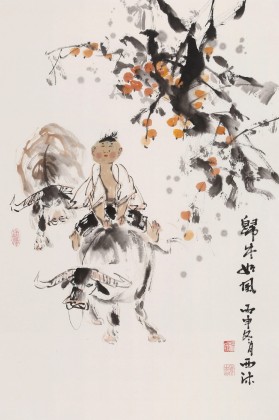 歸牛如風
丙申冬月西沐